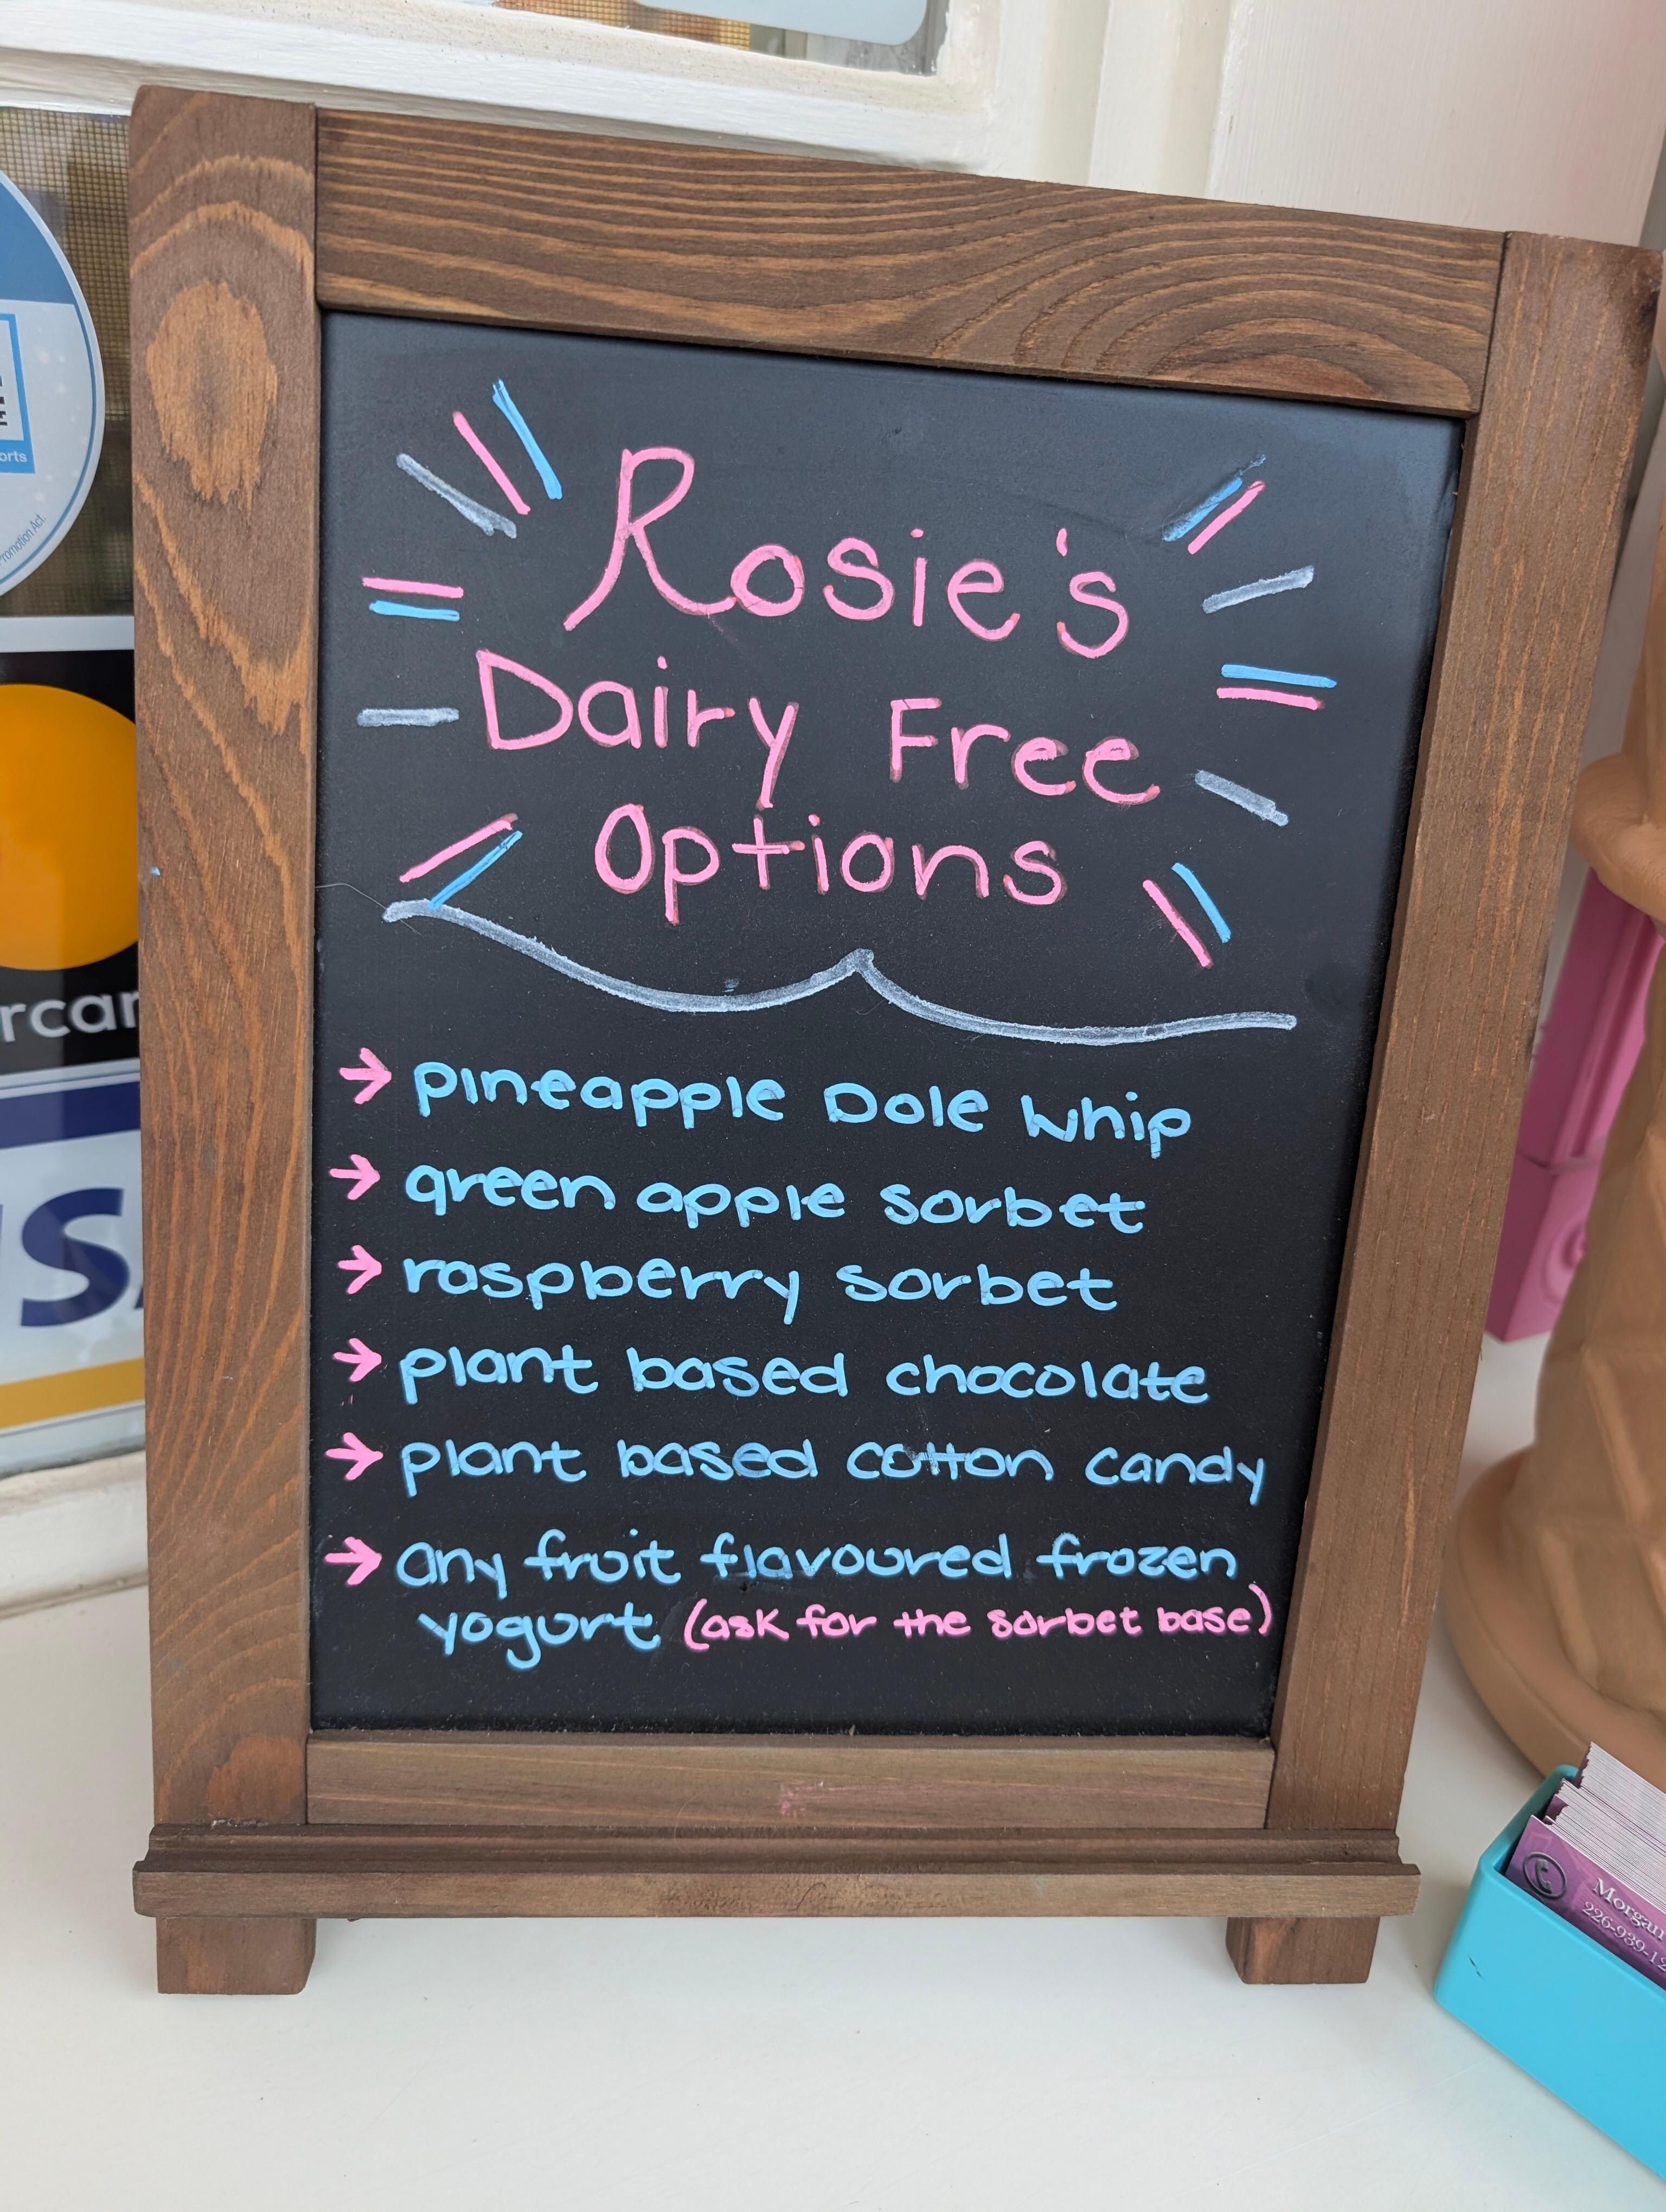 Rosie's
Dairy Free
Options
→ pineapple Dole Whip
→ green apple sorbet
→ raspberry sorbet
→ plant based chocolate
→ plant based cotton candy
→ any fruit flavoured frozen
yogurt (ask for the sorbet base)
orts
romotion Act.
rcar
Morgan
226-939-12